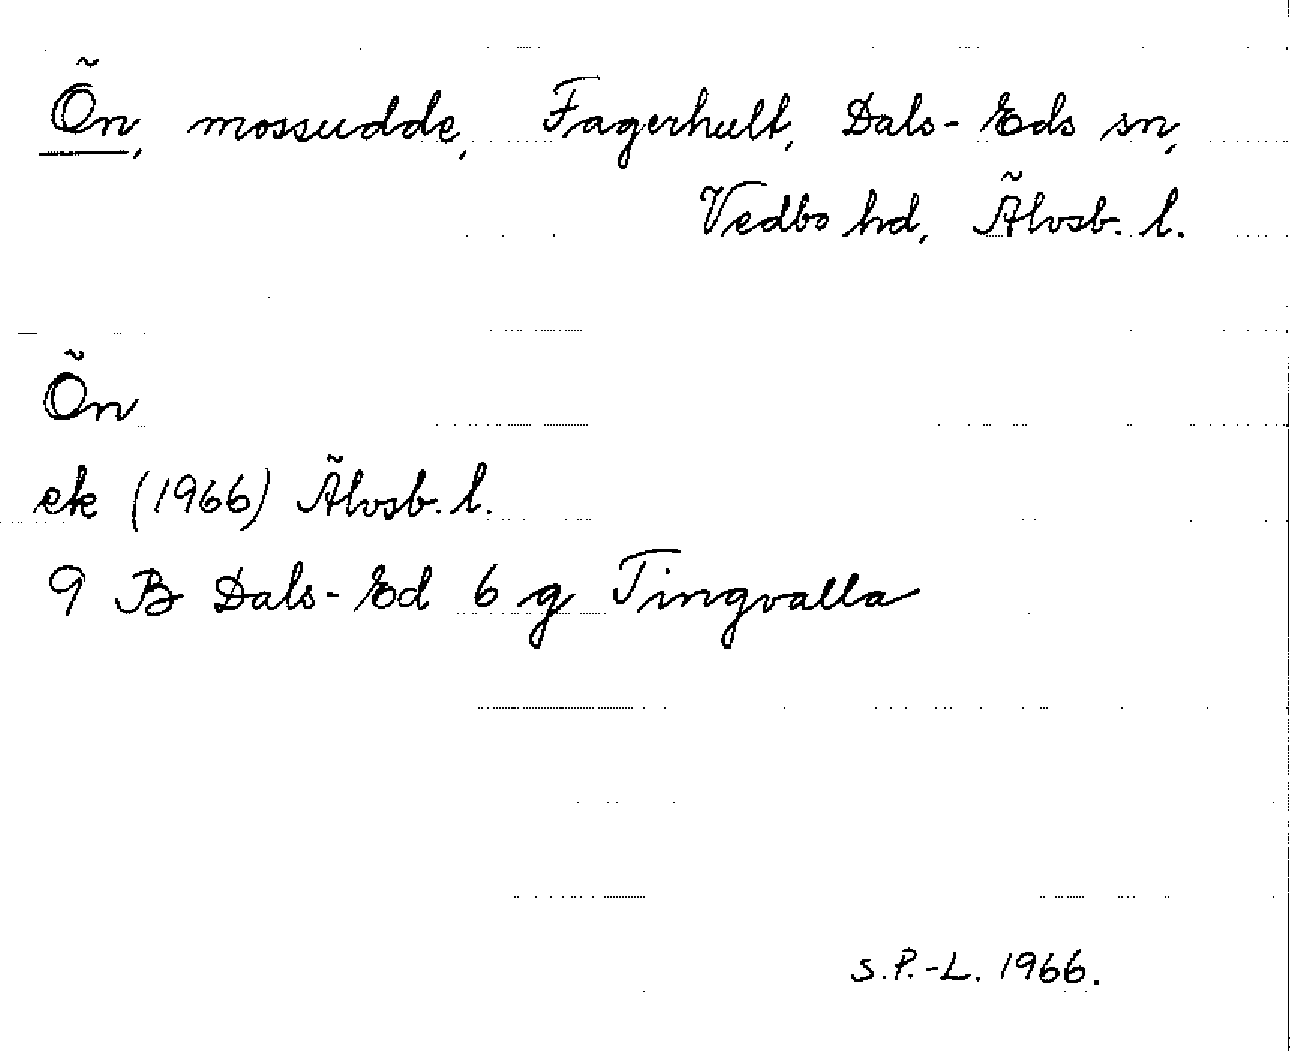 Ön, mossudde, Fagerhult, Dals-Eds sn,
Vedbo hd, Älvsb. l.
Ön
ek (1966) Älvsb. l.
9 B Dals-Ed 6 g Tingvalla
S.P.-L. 1966.